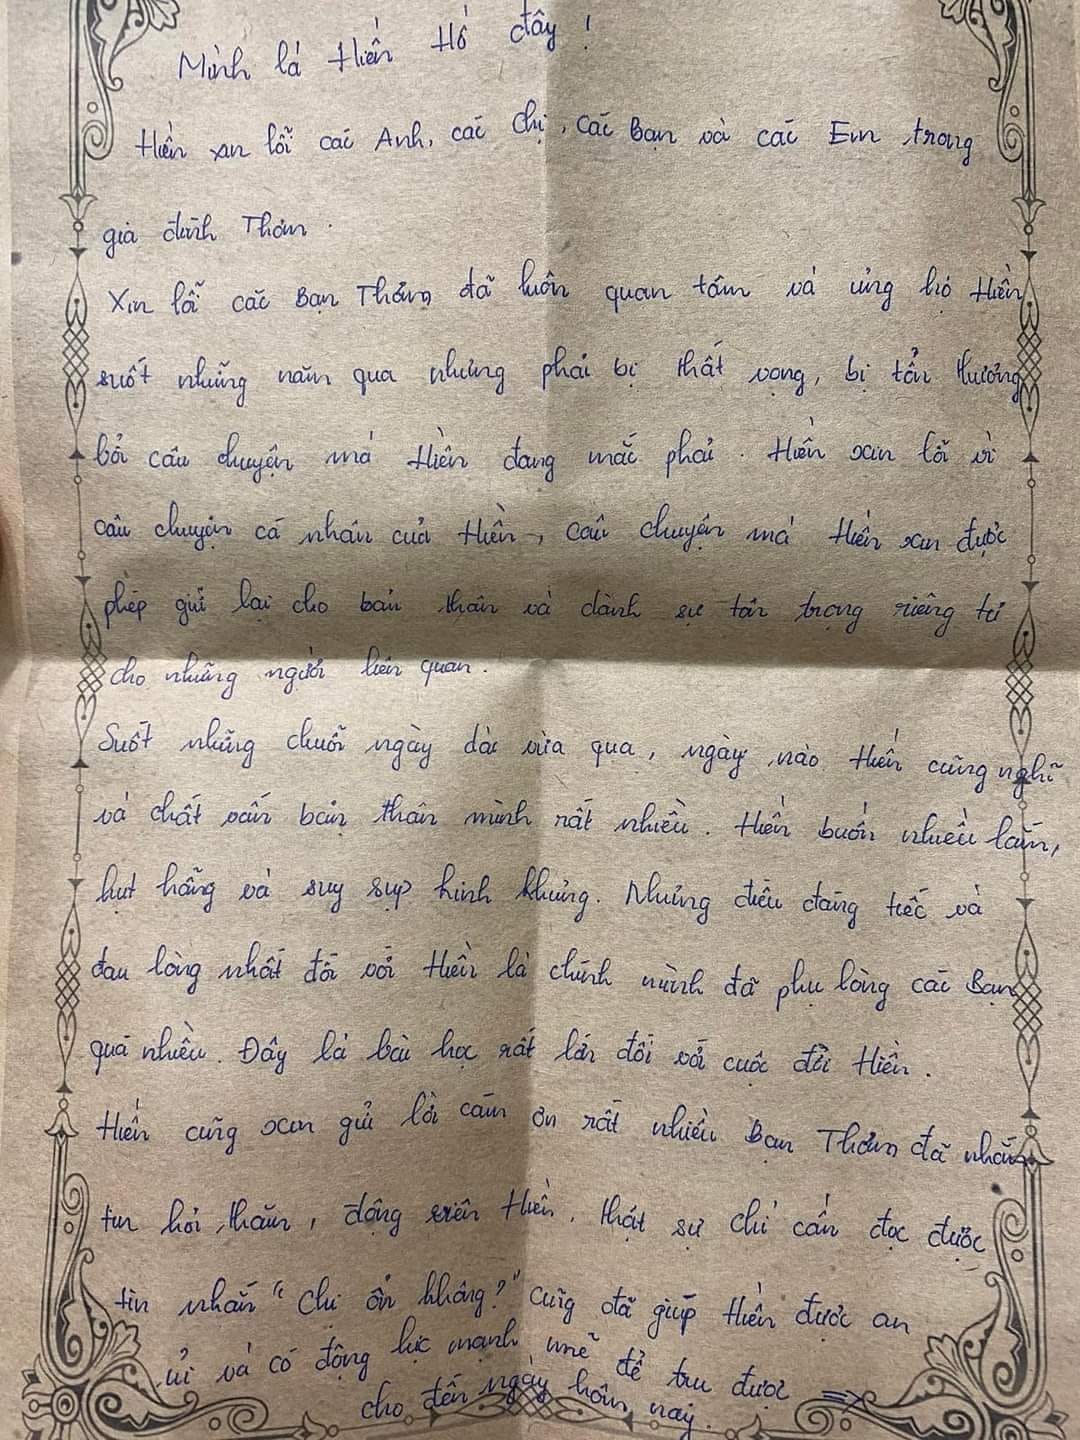 Mình là Hiền Hồ đây !
Hiền xin lỗi các Anh, các chị, các Bạn và các Em trong
gia đình Thơm .
Xin lỗi các Bạn Thơm đã luôn quan tâm và ủng hộ Hiền
suốt những năm qua nhưng phải bị thất vọng, bị tổn thương
bởi câu chuyện mà Hiền đang mắc phải . Hiền xin lỗi vì
câu chuyện cá nhân của Hiền, câu chuyện mà Hiền xin được
phép giữ lại cho bản thân và dành sự tôn trọng riêng tư
cho những người liên quan .
Suốt những chuỗi ngày dài vừa qua, ngày nào Hiền cũng nghĩ
và chất vấn bản thân mình rất nhiều . Hiền buồn nhiều lắm,
hụt hẫng và suy sụp kinh khủng. Nhưng điều đáng tiếc và
đau lòng nhất đối với Hiền là chính mình đã phụ lòng các Bạn
quá nhiều . Đây là bài học rất lớn đối với cuộc đời Hiền .
Hiền cũng xin gửi lời cảm ơn rất nhiều Bạn Thơm đã nhắn
tin hỏi thăm, động viên Hiền, thật sự chỉ cần đọc được
tin nhắn " chị ổn không? " cũng đã giúp Hiền được an
ủi và có động lực mạnh mẽ để trụ được ⇒
cho đến ngày hôm nay .